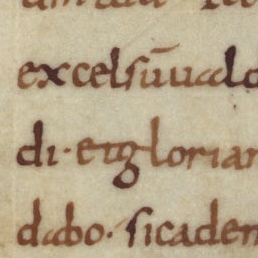 excelsū uald
di · et gloriam
dabo · si caden